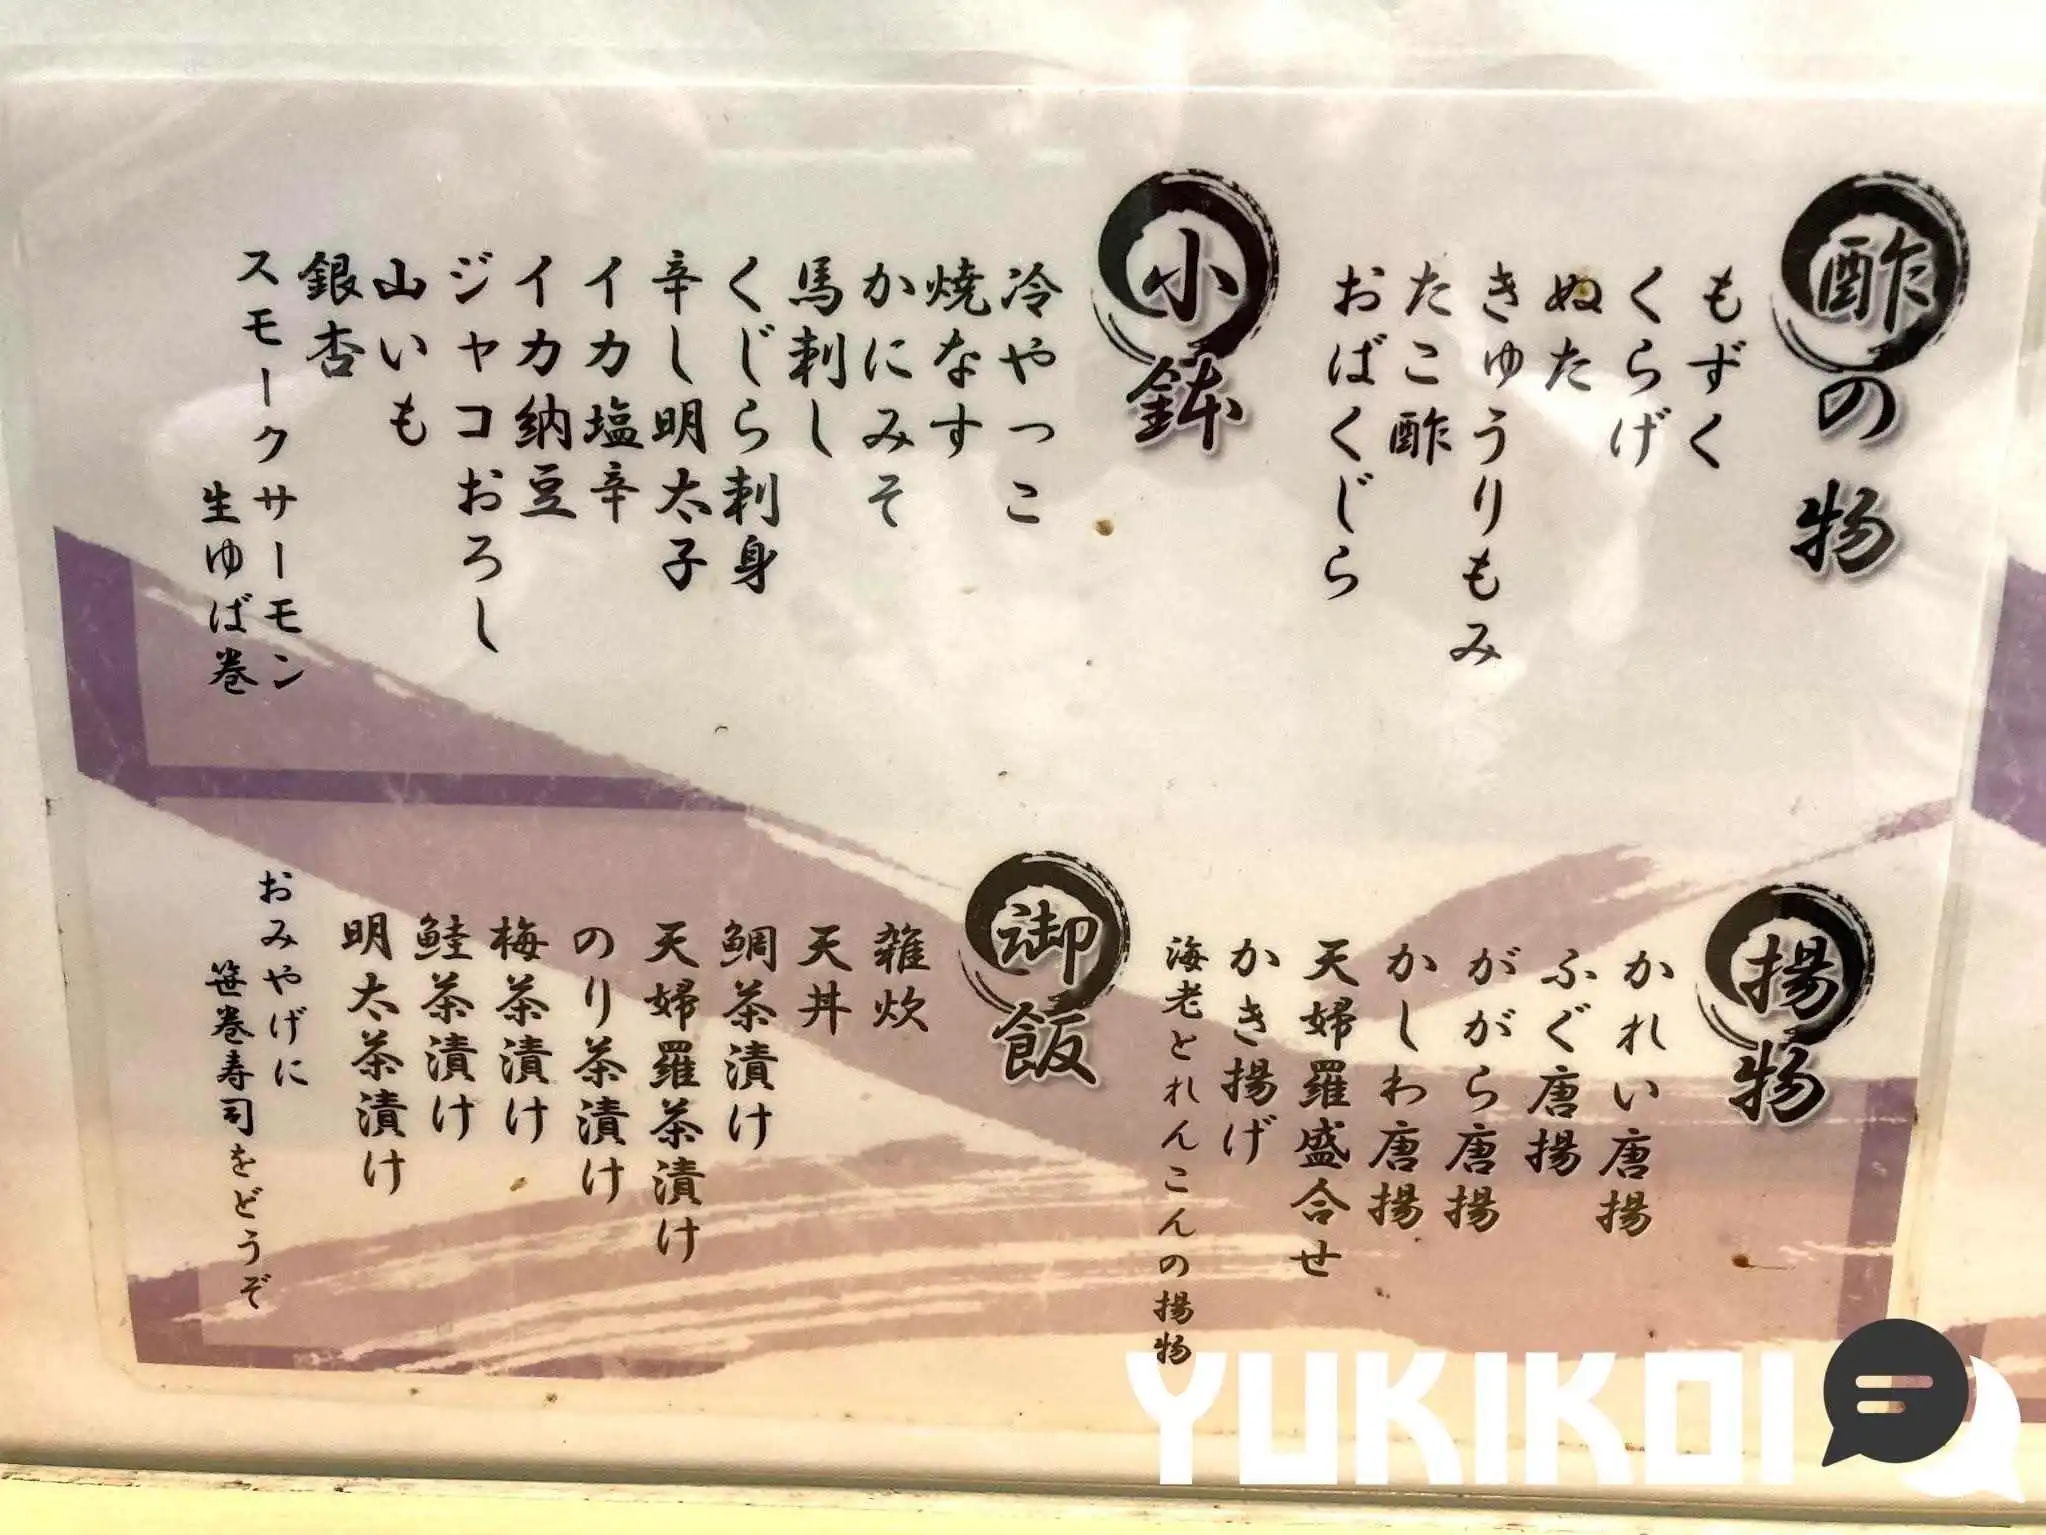 酢の物
もずく
くらげ
ぬた
きゅうりもみ
たこ酢
おばくじら
小鉢
冷やっこ
焼なす
かにみそ
馬刺し
くじら刺身
辛し明太子
イカ塩辛
イカ納豆
ジャコおろし
山いも
銀杏
スモークサーモン
生ゆば巻
揚物
かれい唐揚
ふぐ唐揚
ががら唐揚
かしわ唐揚
天婦羅盛合せ
かき揚げ
海老とれんこんの揚物
御飯
雑炊
天丼
鯛茶漬け
天婦羅茶漬け
のり茶漬け
梅茶漬け
鮭茶漬け
明太茶漬け
おみやげに
笹巻寿司をどうぞ
YUKIKOI